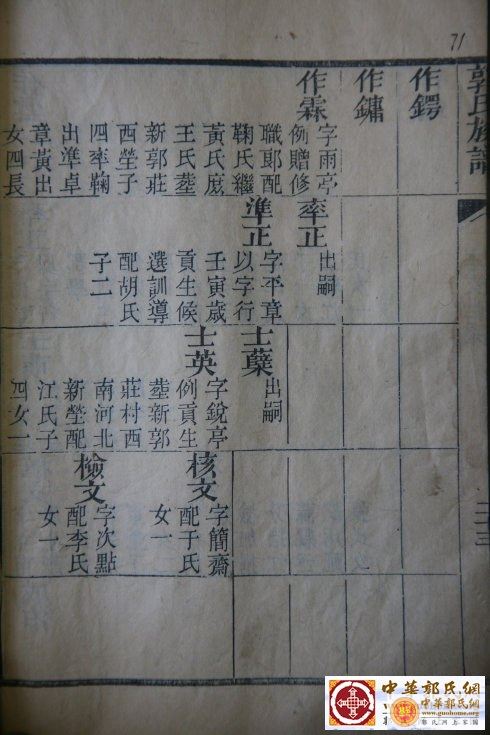 71
郭氏族譜
二十三
作鍔
作鏞
作霖
字雨亭
例贈修
職郎配
鞠氏繼
黃氏庶
王氏塟
新郭莊
西塋子
四率鞠
出準卓
章黃出
女四長
率正
出嗣
準正
字平章
以字行
壬寅歲
貢生候
選訓導
配胡氏
子二
士蘽
出嗣
士英
字銳亭
例貢生
塟新郭
莊村西
南河北
新塋配
江氏子
四女一
核文
字簡齋
配于氏
女一
檢文
字次點
配李氏
女一
中華郭氏網
中華郭氏網
www.guohome.org
郭氏網上家園